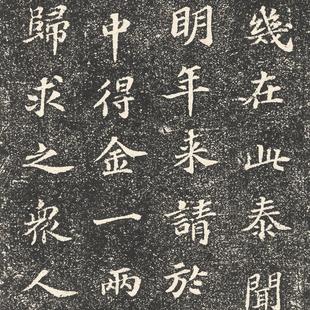 幾在此泰聞
明年来請於
中得金一兩
歸求之眾人